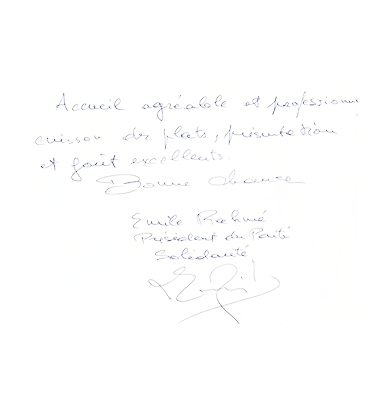 Accueil agréable et professionn
cuisson des plats, présentation
et goût excellents.
Bonne chance
Emile Rahmé
Président du Parti
Solidarité